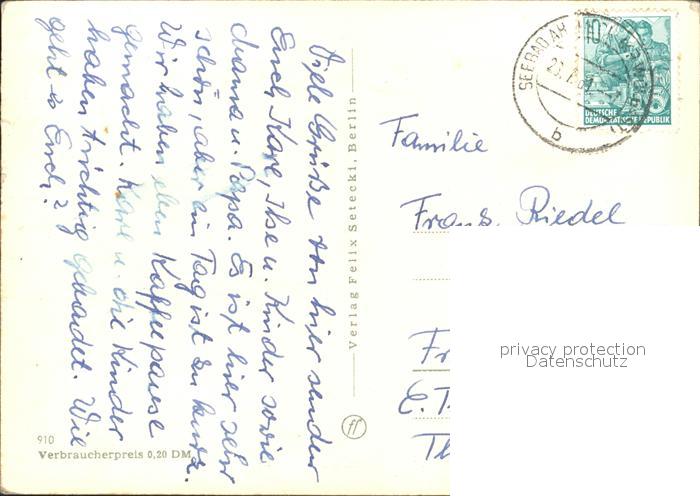 Viele Grüße von hier sendet
Euch Karl, Ilse u. Kinder sowie
Mama u. Papa. Es ist hier sehr
schön, aber ein Tag ist zu kurz.
Wir haben eben Kaffeepause
gemacht. Karl u. die Kinder
haben tüchtig gebadet. Wie
geht es Euch?
910
Verbraucherpreis 0,20 DM
Verlag Felix Setecki, Berlin
SEEBAD AH
b
10
DEUTSCHE
DEMOKRATISCHE REPUBLIK
Familie
Frans. Riedel
Fr
E. T
Th
privacy protection
Datenschutz